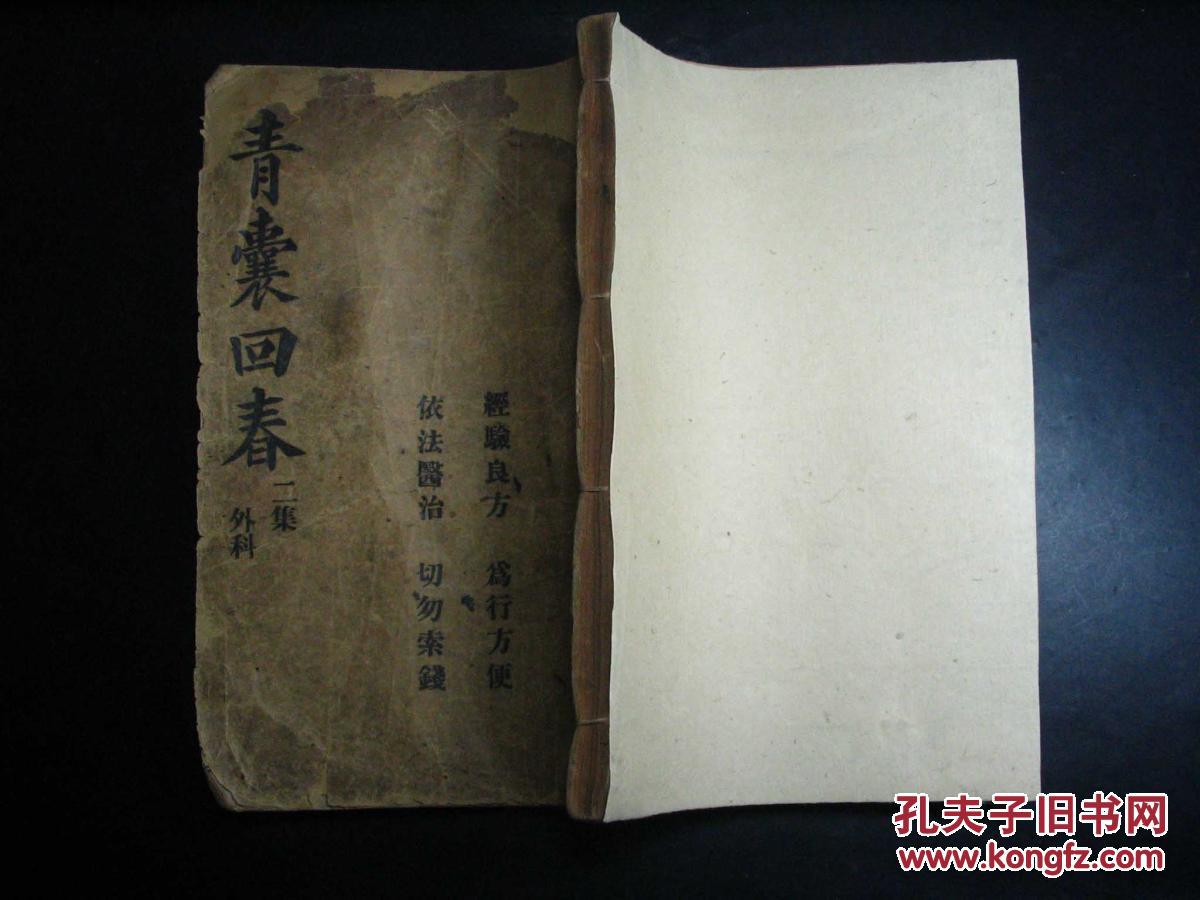 經驗良方　爲行方便
依法醫治　切勿索錢
青囊回春
二集
外科
孔夫子旧书网
www.kongfz.com